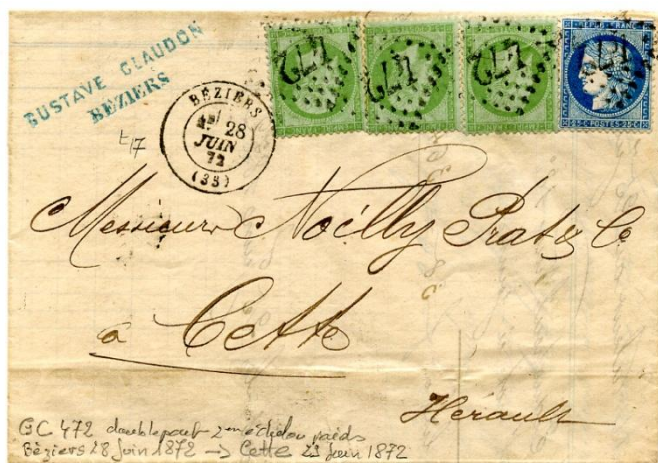 GUSTAVE CLAUDON
BÉZIERS
BÉZIERS
28
JUIN
72
(33)
472
472
472
472
REPUB. FRANC.
25 C POSTES 25 C
Messieurs Noilly Prat & Co
à Cette
Hérault
GC 472 double port 2me échelon poids
Béziers 28 Juin 1872 → Cette 29 Juin 1872